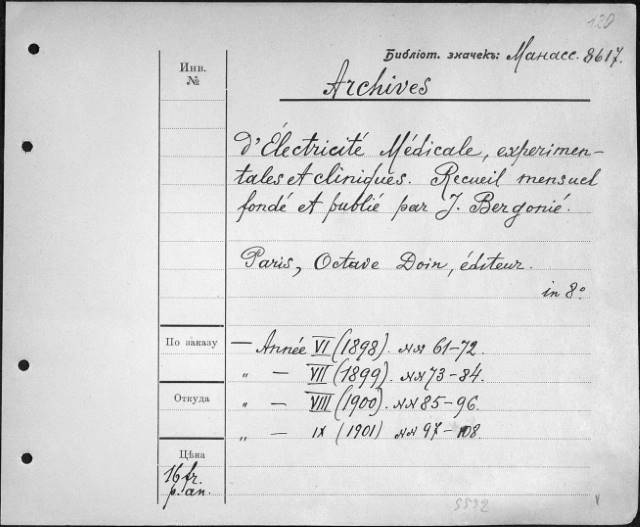 120
Библіот. значекъ: Манасс. 8617.
Инв.
№
Archives
d'Électricité Médicale, experimen-
tales et cliniques. Recueil mensuel
fondé et publié par J. Bergonié.
Paris, Octave Doin, éditeur.
in 8°
По заказу
— Année VI (1898). №№ 61-72.
„ — VII (1899). №№ 73-84.
Откуда
„ — VIII (1900). №№ 85-96.
„ — IX (1901) №№ 97-108.
Цѣна
16 fr.
p. an.